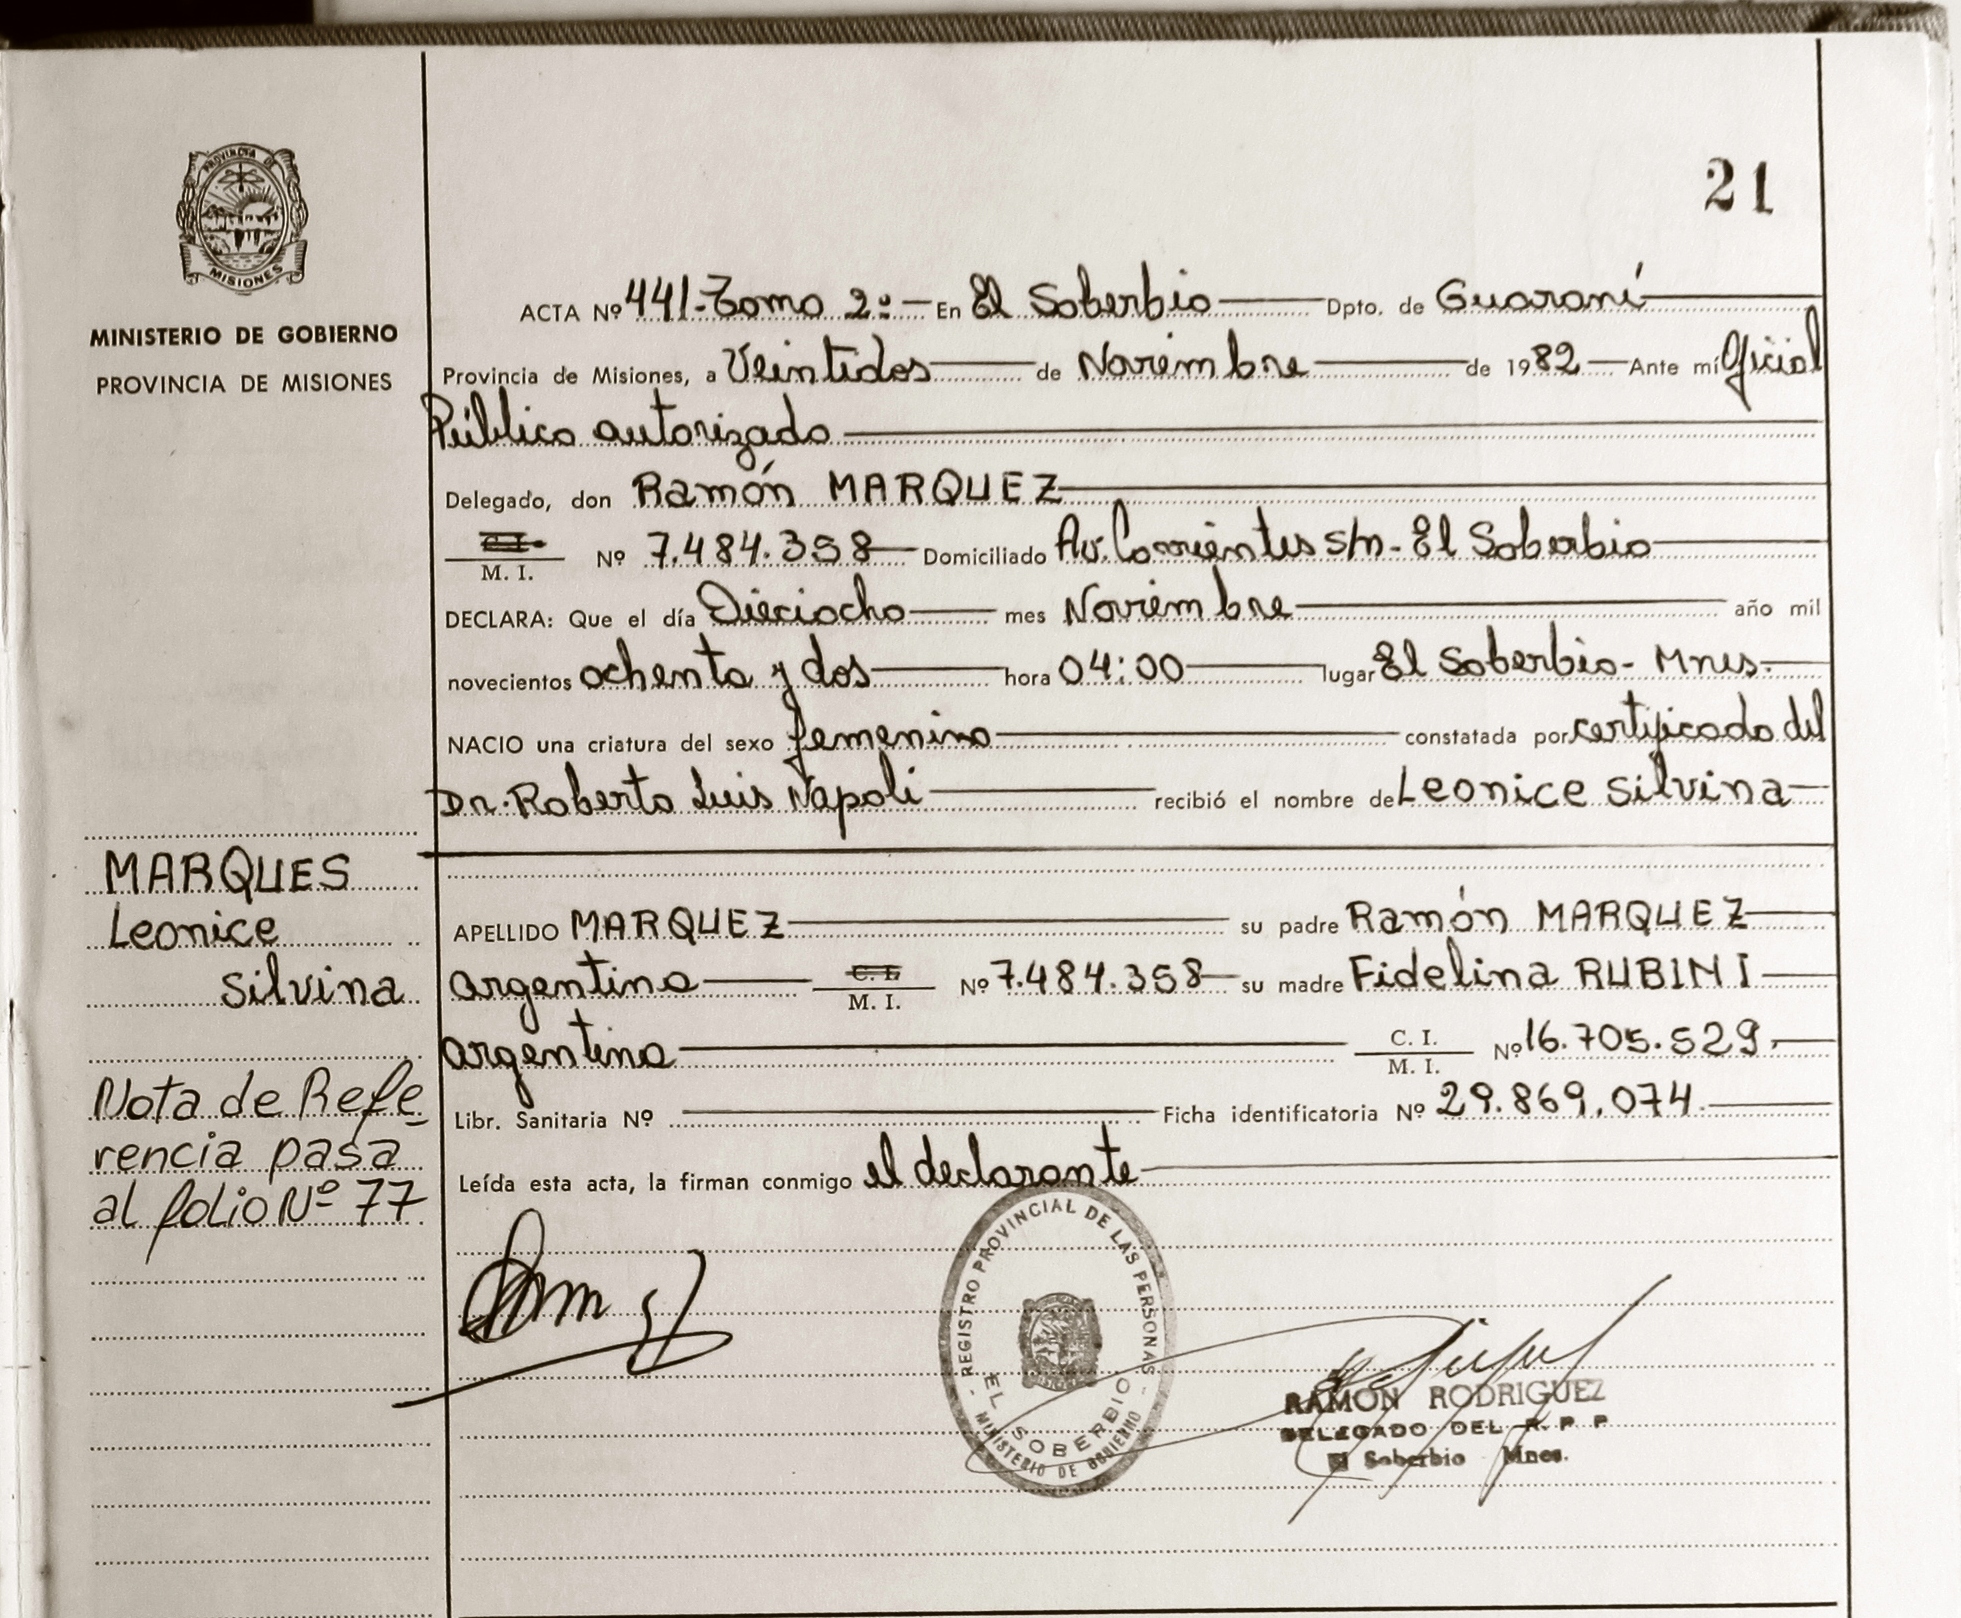 PROVINCIA DE
MISIONES
MINISTERIO DE GOBIERNO
PROVINCIA DE MISIONES
21
ACTA Nº 441-Tomo 2º- En El Soberbio Dpto. de Guaraní
Provincia de Misiones, a Veintidos de Noviembre de 1982 Ante mí Oficial
Público autorizado
Delegado, don Ramón MARQUEZ
C. I.
M. I. Nº 7.484.358 Domiciliado Av. Corrientes s/n- El Soberbio
DECLARA: Que el día Dieciocho mes Noviembre año mil
novecientos ochenta y dos hora 04:00 lugar El Soberbio- Mnes.
NACIO una criatura del sexo femenino constatada por certificado del
Dr. Roberto Luis Napoli recibió el nombre de Leonice Silvina
MARQUES
Leonice
Silvina
APELLIDO MARQUEZ su padre Ramón MARQUEZ
argentino C. I. M. I. Nº 7.484.358 su madre Fidelina RUBINI
argentina C. I. M. I. Nº 16.705.529.
Libr. Sanitaria Nº Ficha identificatoria Nº 29.869.074.
Leída esta acta, la firman conmigo el declarante
Nota de Refe-
rencia pasa
al folio Nº 77
REGISTRO PROVINCIAL DE LAS PERSONAS
EL SOBERBIO
MINISTERIO DE GOBIERNO
RAMON RODRIGUEZ
DELEGADO DEL R. P P
El Soberbio Mnes.